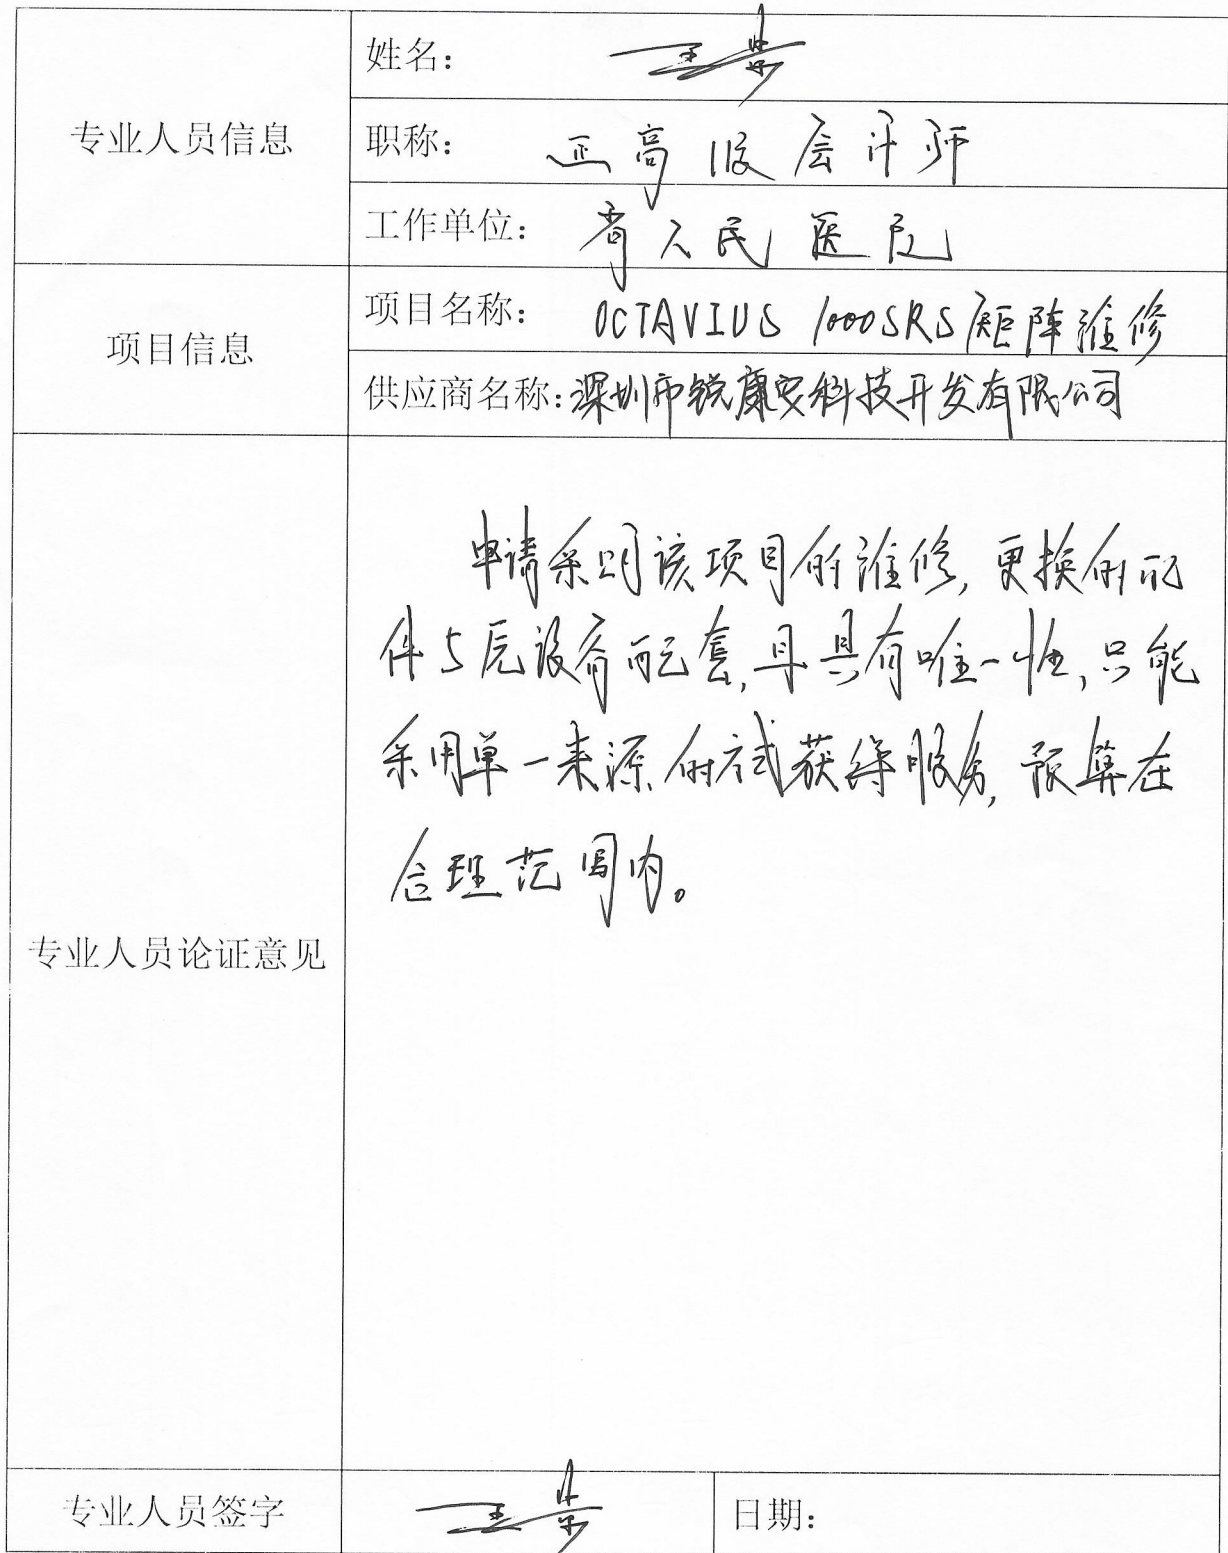 姓名：王
专业人员信息
职称：正高级会计师
工作单位：省人民医院
项目信息
项目名称：OCTAVIUS 1000SRS矩阵维修
供应商名称：深圳市锐康安科技开发有限公司
申请采购该项目的维修,更换的配
件与原设备配套,且具有唯一性,只能
采用单一来源的方式获得服务,预算在
合理范围内。
专业人员论证意见
专业人员签字 王 日期：